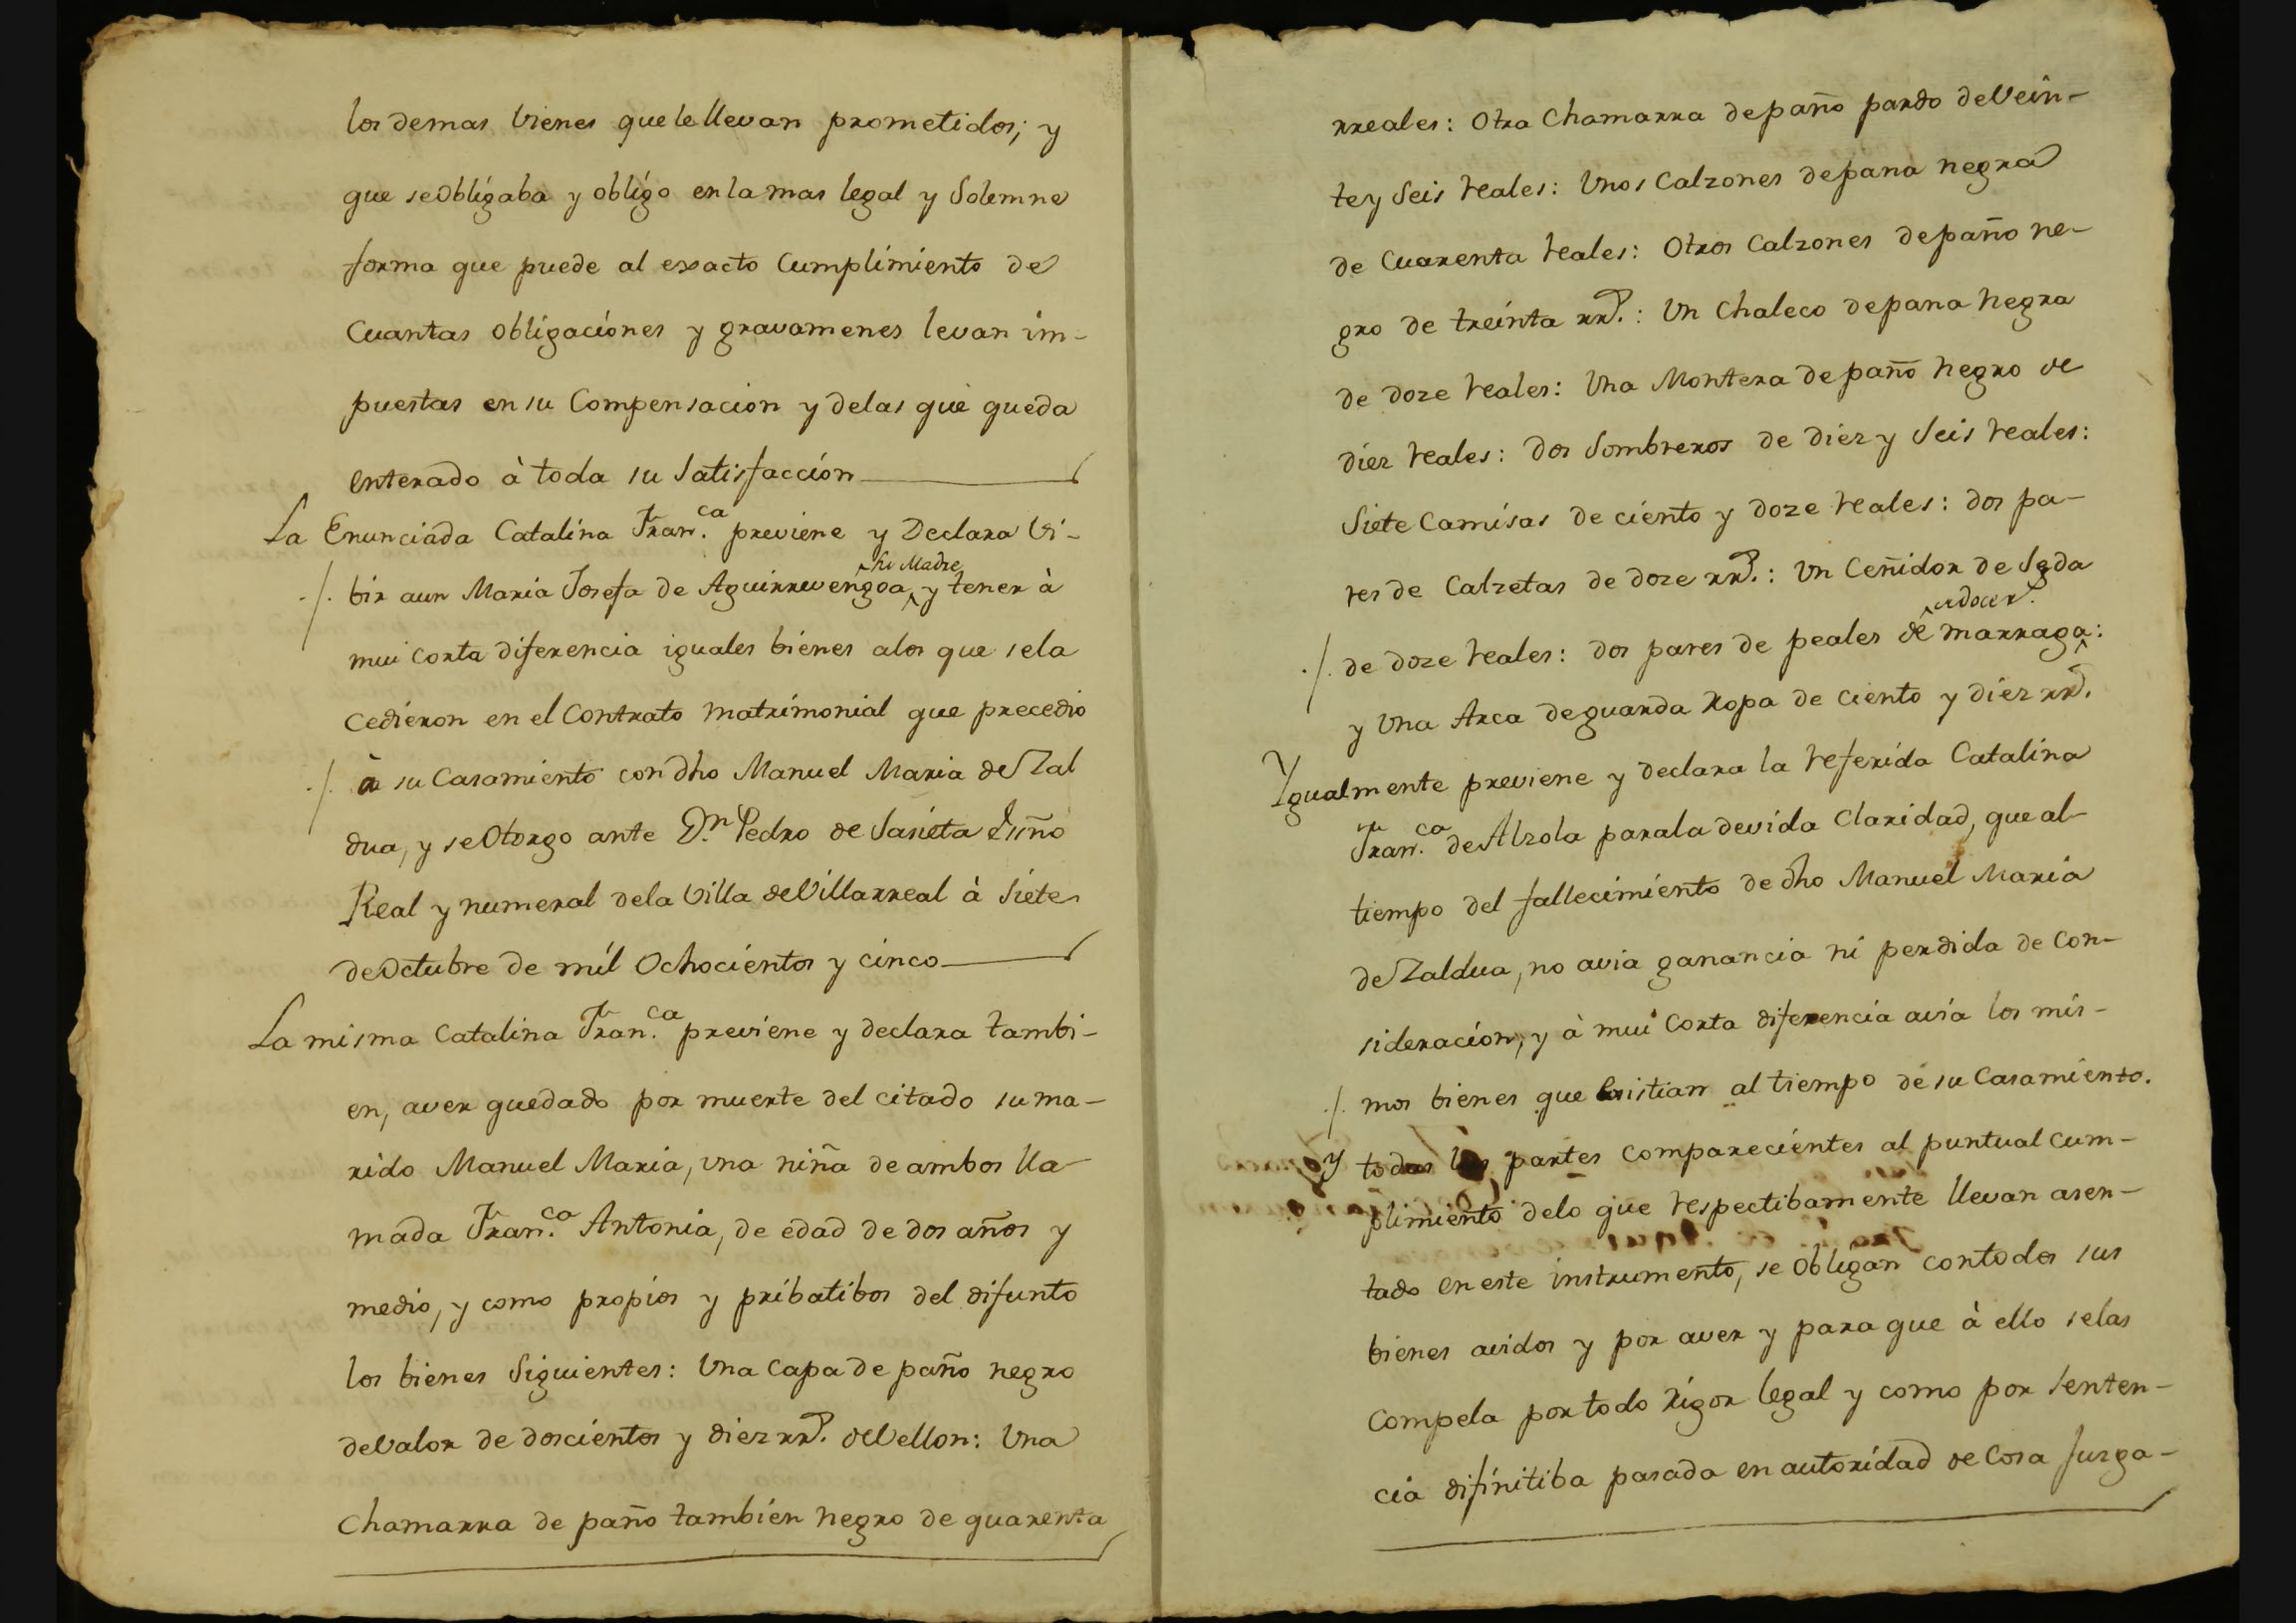 los demas vienes que le llevan prometidos; y
que se obligaba y obligo en la mas legal y Solemne
forma que puede al exsacto Cumplimiento de
Cuantas obligaciones y gravamenes levan im-
puestas en su Compensacion y de las que queda
enterado à toda su Satisfacción
La Enunciada Catalina Fran.ca previene y Declara vi-
su Madre
bir aun Maria Josefa de Aguirrevengoa, y tener à
mui corta diferencia iguales bienes a los que se la
cedieron en el Contrato matrimonial que precedio
à su Casamiento con dho Manuel Maria de Zal
dua, y se Otorgo ante Dn. Pedro de Sasieta Essño
Real y numeral de la Villa de Villarreal à Siete
de Octubre de mil Ochocientos y cinco
La misma Catalina Fran.ca previene y declara tambi-
en, aver quedado por muerte del citado su ma-
rido Manuel Maria, una niña de ambos lla
mada Fran.ca Antonia, de edad de dos años y
medio, y como propios y pribatibos del difunto
los bienes Siguientes: Una Capa de paño negro
de valor de doscientos y diez rr.s de Vellon: Una
Chamarra de paño tambien negro de quarenta
rreales: Otra Chamarra de paño pardo de Vein-
te y Seis reales: Unos Calzones de pana negra
de Cuarenta reales: Otros Calzones de paño ne-
gro de treinta rr.s: Un Chaleco de pana negra
de doze reales: Una Montera de paño negro de
diez reales: dos Sombreros de diez y Seis reales:
Siete Camisas de ciento y doze reales: dos pa-
res de Calzetas de doze rr.s: Un Ceñidor de Seda
de doze r.s
de doze reales: dos pares de peales de marraga:
y Una Arca de guarda Ropa de Ciento y diez rr.s
Ygualmente previene y declara la referida Catalina
Fran.ca de Alzola para la devida Claridad, que al
tiempo del fallecimiento de dho Manuel Maria
de Zaldua, no avia ganancia ni perdida de Con-
sideracion, y à mui Corta diferencia avia los mis-
mos bienes que Existian al tiempo de su Casamiento.
y todas las partes Comparecientes al puntual Cum-
plimiento de lo que respectibamente llevan asen-
tado en este instrumento, se obligan con todos sus
bienes avidos y por aver y para que à ello se las
Compela por todo rigor legal y como por Senten-
cia difinitiba pasada en autoridad de Cosa Juzga-